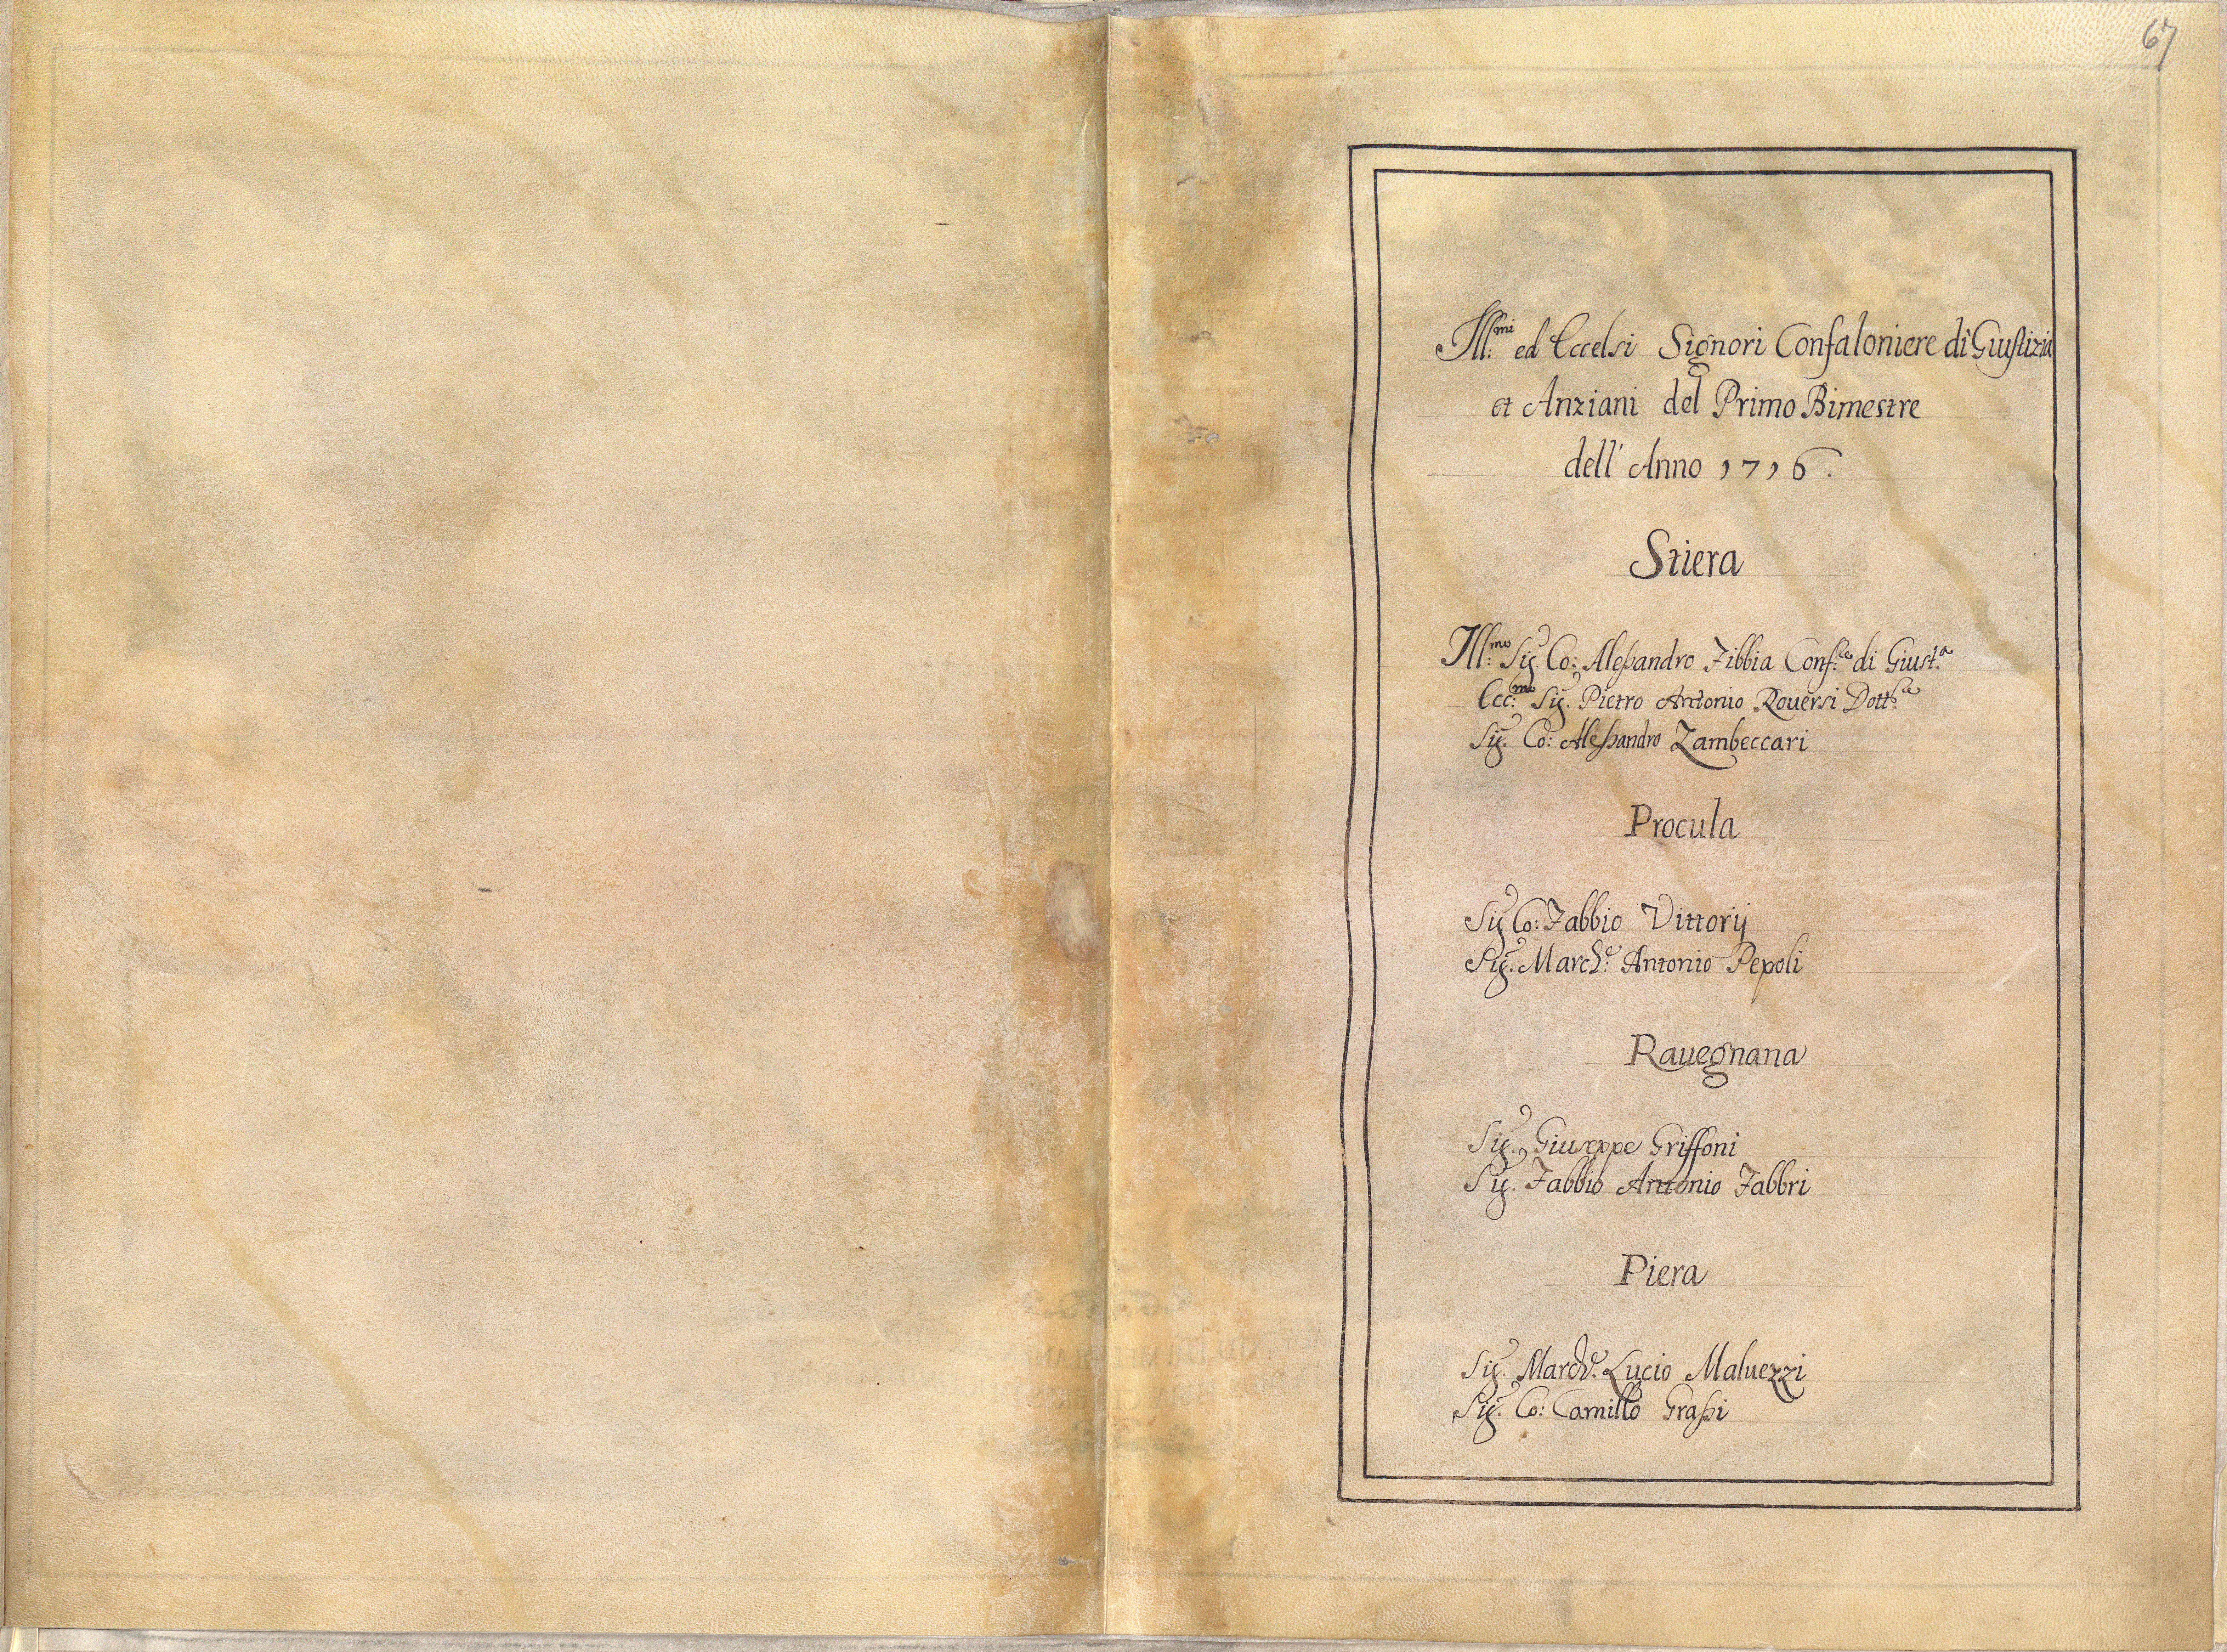 67
Ill:mi ed Eccelsi Signori Confaloniere di Giustizia
et Anziani del Primo Bimestre
dell' Anno 1716.
Stiera
Ill:mo Sig. Co: Alessandro Fibbia Conf:re di Giust.a
Ecc:mo Sig. Pietro Antonio Rouersi Dott:re
Sig. Co: Alessandro Zambeccari
Procula
Sig Co: Fabbio Vittorij
Sig. March:e Antonio Pepoli
Rauegnana
Sig. Giuseppe Griffoni
Sig. Fabbio Antonio Fabbri
Piera
Sig. March:e Lucio Maluezzi
Sig. Co: Camillo Grassi